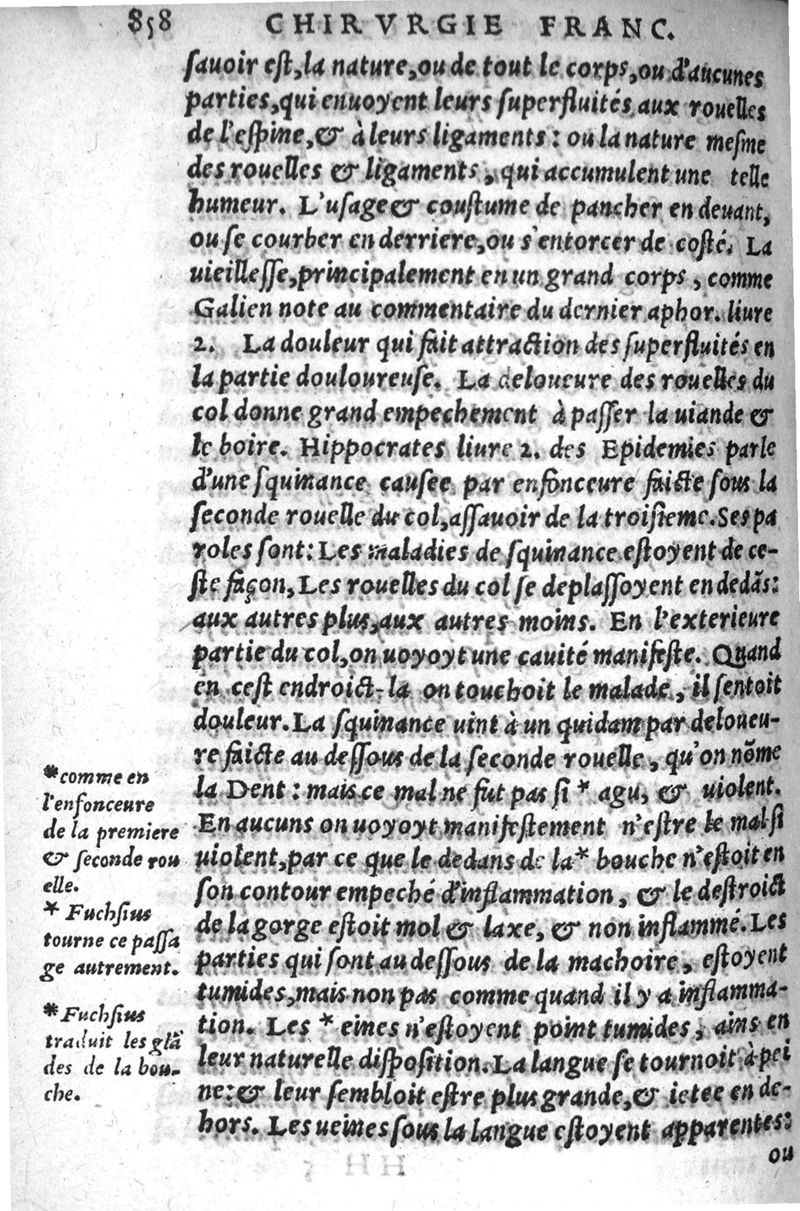 858 CHIRVRGIE FRANC.
sauoir est, la nature, ou de tout le corps, ou d'aucunes
parties, qui enuoyent leurs superfluités aux rouelles
de l'espine, & à leurs ligaments: ou la nature mesme
des rouelles & ligaments, qui accumulent une telle
humeur. L'usage & coustume de pancher en deuant,
ou se courber en derriere, ou s'entorcer de costé. La
uieillesse, principalement en un grand corps, comme
Galien note au commentaire du dernier aphor. liure
2. La douleur qui fait attraction des superfluités en
la partie douloureuse. La deloueure des rouelles du
col donne grand empechement à passer la uiande &
le boire. Hippocrates liure 2. des Epidemies parle
d'une squinance causee par enfonceure faicte sous la
seconde rouelle du col, assauoir de la troisieme. Ses pa
roles sont: Les maladies de squinance estoyent de ce-
ste façon, Les rouelles du col se deplassoyent en dedãs:
aux autres plus, aux autres moins. En l'exterieure
partie du col, on uoyoyt une cauité manifeste. Quand
en cest endroict-la on touchoit le malade, il sentoit
douleur. La squinance uint à un quidam par deloueu-
re faicte au dessous de la seconde rouelle, qu'on nõme
la Dent: mais ce mal ne fut pas si * agu, & uiolent.
En aucuns on uoyoyt manifestement n'estre le mal si
uiolent, par ce que le dedans de la * bouche n'estoit en
son contour empeché d'inflammation, & le destroict
de la gorge estoit mol & laxe, & non inflammé. Les
parties qui sont au dessous de la machoire, estoyent
tumides, mais non pas comme quand il y a inflamma-
tion. Les * eines n'estoyent point tumides, ains en
leur naturelle disposition. La langue se tournoit à pei
ne: & leur sembloit estre plus grande, & ietee en de-
hors. Les ueines sous la langue estoyent apparentes:
ou
*comme en
l'enfonceure
de la premiere
& seconde rou
elle.
* Fuchsius
tourne ce passa
ge autrement.
*Fuchsius
traduit les glã
des de la bou-
che.